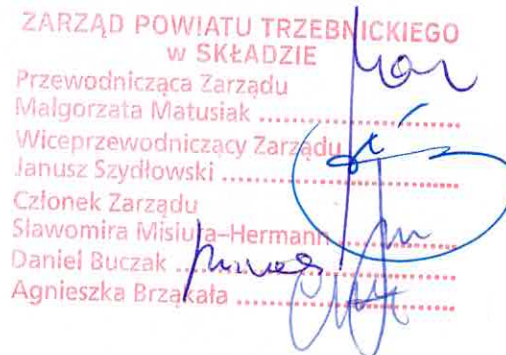 ZARZĄD POWIATU TRZEBNICKIEGO
w SKŁADZIE
Przewodnicząca Zarządu
Małgorzata Matusiak ..........................
Wiceprzewodniczący Zarządu
Janusz Szydłowski ..............................
Członek Zarządu
Sławomira Misiura–Hermann ..............
Daniel Buczak ....................................
Agnieszka Brząkała .............................